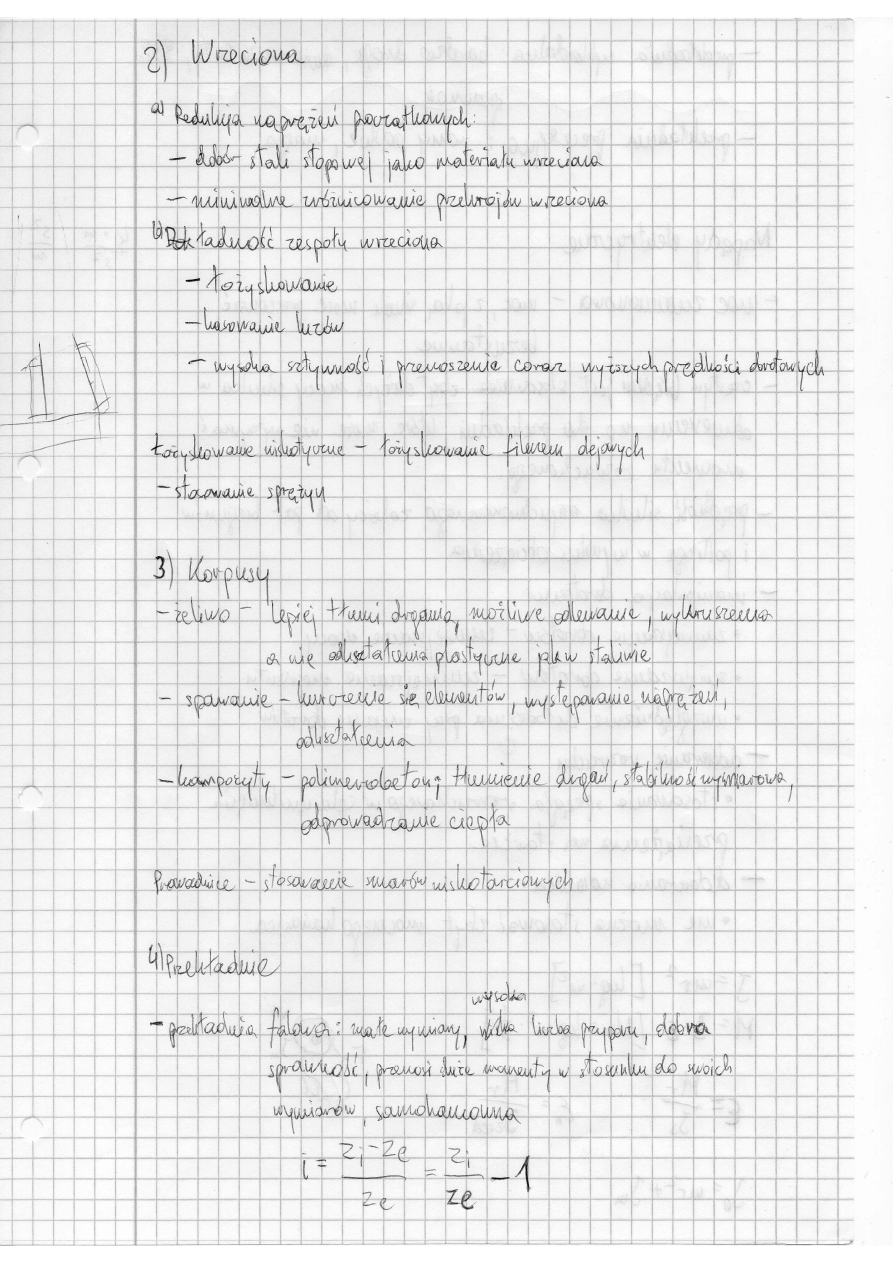 2) Wrzeciona
a) Redukcja naprężeń początkowych:
- dobór stali stopowej jako materiału wrzeciona
- minimalne zróżnicowanie przekrojów wrzeciona
b) Dokładność zespołu wrzeciona
- łożyskowanie
- kasowanie luzów
- wysoka sztywność i przenoszenie coraz wyższych prędkości obrotowych
Łożyskowanie - łożyskowanie filmem olejowych
- stosowanie sprężyn
3) Korpusy
- żeliwo - lepiej tłumi drgania, możliwe odlewanie, wykruszenia
a nie odkształcenia plastyczne jak w staliwie
- spawanie - kurczenie się elementów, występowanie naprężeń,
odkształcenia
- kompozyty - polimerobeton; tłumienie drgań, stabilność wymiarowa,
odprowadzanie ciepła
Prowadnice - stosowanie smarów niskotarciowych
4) Przekładnie
wysoka
- przekładnia falowa: małe wymiary, liczba przyporu, dobra
sprawność, przenosi duże momenty w stosunku do swoich
wymiarów, samohamowna
i = zi-ze / ze = zi / ze - 1